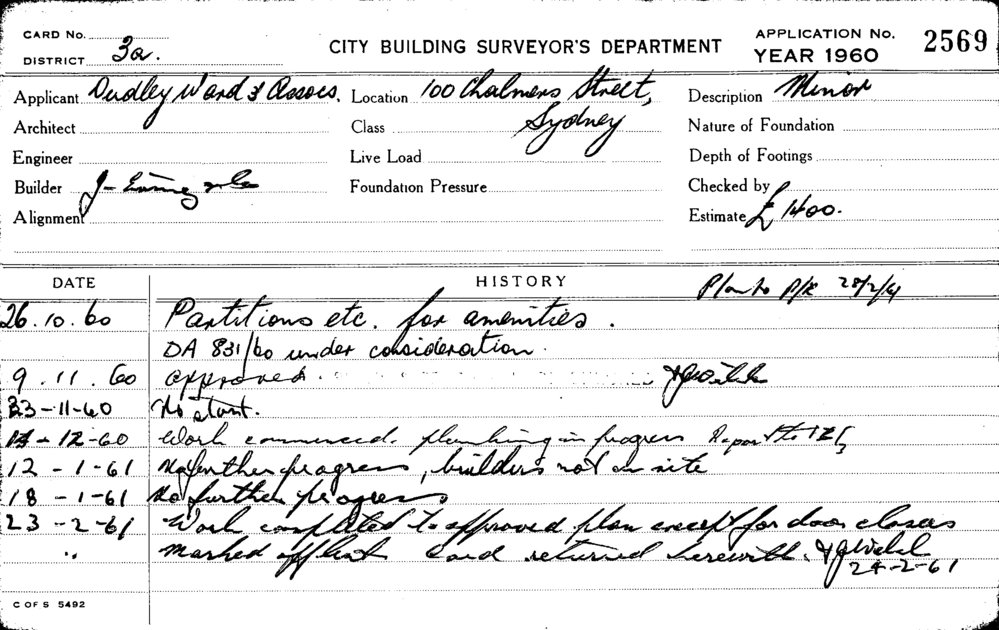 CARD No. CITY BUILDING SURVEYOR'S DEPARTMENT APPLICATION No. 2569
DISTRICT 3a. YEAR 1960
Applicant Dudley Ward & Assocs. Location 100 Chalmers Street, Description Minor
Architect Class Sydney Nature of Foundation
Engineer Live Load Depth of Footings
Builder J- Foundation Pressure Checked by
Alignment Estimate £ 1400.
DATE HISTORY Plan to P/R 28/2/61
26.10.60 Partitions etc. for amenities.
DA 831/60 under consideration.
9.11.60 approved.
23-11-60 No start.
-12-60 Work commenced. plumbing in progress
12-1-61 No further progress, builders not on site
18-1-61 No further progress
23-2-61 Work completed to approved plan except for door closers
" marked off list card returned herewith.
24-2-61
C OF S 5492